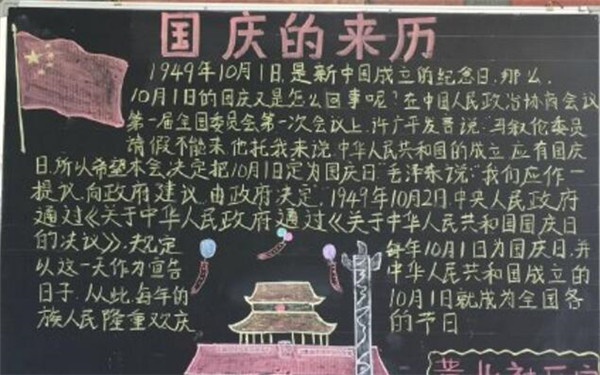 国庆的来历
1949年10月1日,是新中国成立的纪念日,那么,
10月1日的国庆又是怎么回事呢?在中国人民政治协商会议
第一届全国委员会第一次会议上,许广平发言说:"马叙伦委员
请假不能来,他托我来说,中华人民共和国的成立,应有国庆
日,所以希望本会决定把10月1日定为国庆日"毛泽东说"我们应作一
提议,向政府建议,由政府决定,1949年10月2日,中央人民政府
通过《关于中华人民政府通过《关于中华人民共和国国庆日
的决议》,规定
每年10月1日为国庆日,并
以这一天作为宣告
中华人民共和国成立的
日子.从此,每年的
10月1日就成为全国各
族人民隆重欢庆
的节日